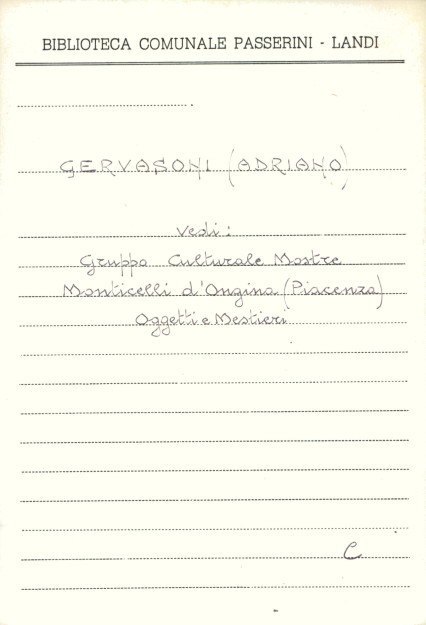 BIBLIOTECA COMUNALE PASSERINI - LANDI
GERVASONI (ADRIANO)
Vedi:
Gruppo Culturale Mostre
Monticelli d'Ongina (Piacenza)
Oggetti e Mestieri
C